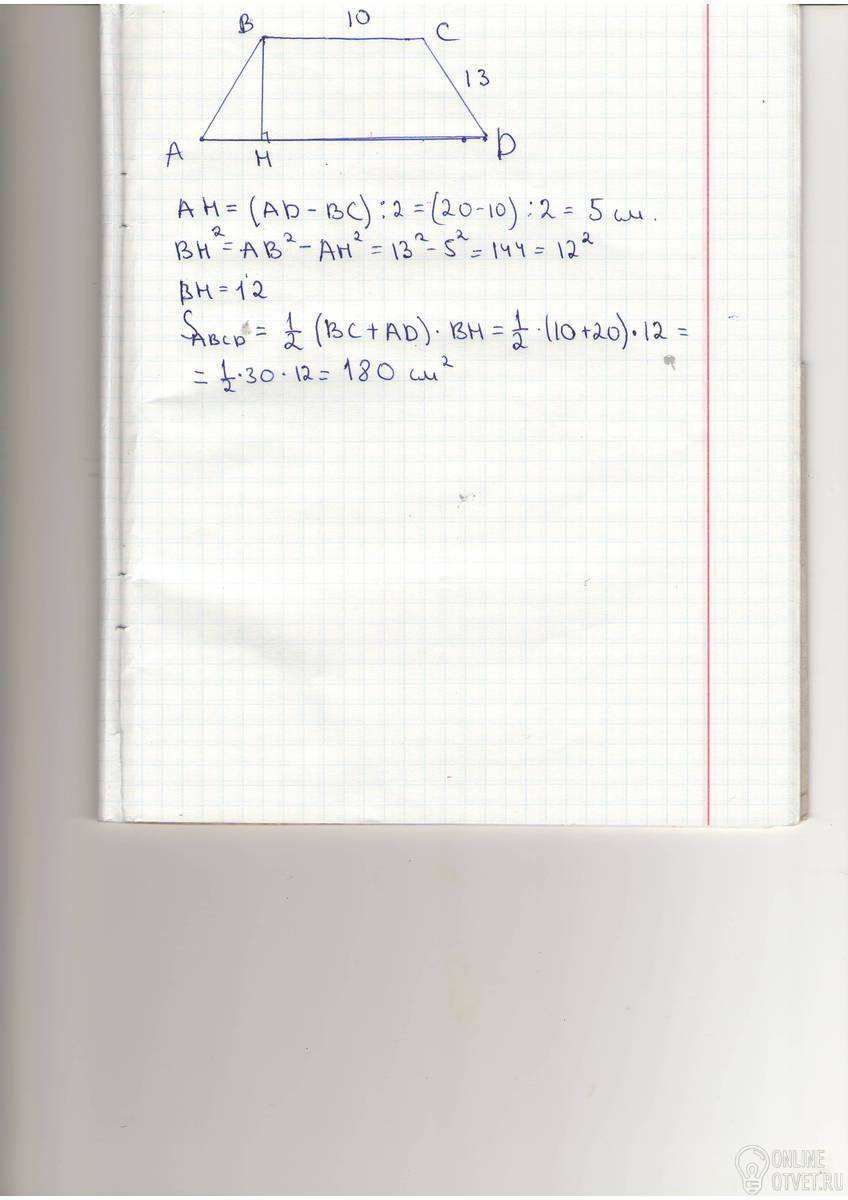 B 10 C
13
A H D
AH = (AD - BC) : 2 = (20-10) : 2 = 5 см.
BH² = AB² - AH² = 13² - 5² = 144 = 12²
BH = 12
S_ABCD = 1/2 (BC + AD) · BH = 1/2 · (10+20) · 12 =
= 1/2 · 30 · 12 = 180 см²
ONLINE
OTVET.RU